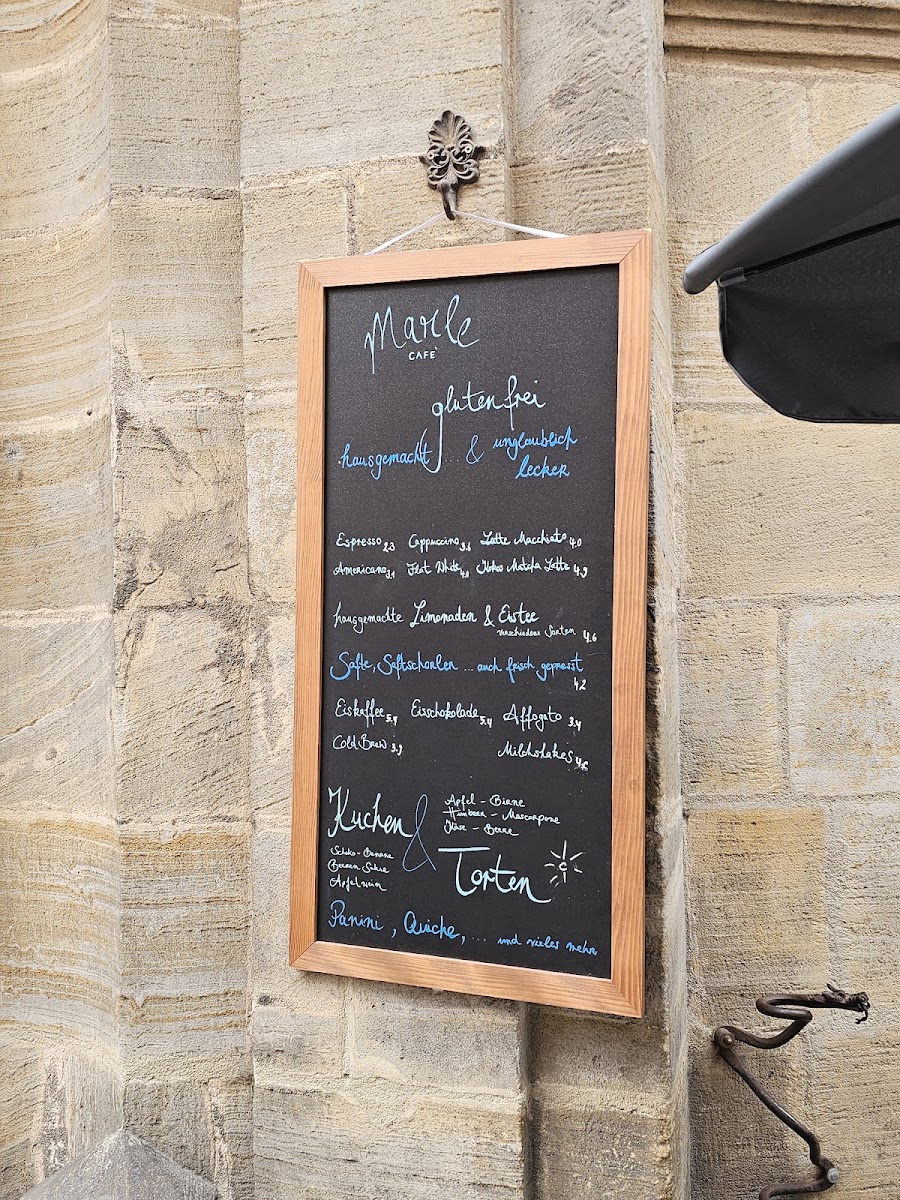 Marle
CAFÉ
glutenfrei
hausgemacht ... & unglaublich
lecker
Espresso 2.3 Cappuccino 3.6 Latte Macchiato 4.0
Americano 3.1 Flat White 4.0 Kokos Matcha Latte 4.9
hausgemachte Limonaden & Eistee
verschiedene Sorten 4.6
Säfte, Saftschorlen ... auch frisch gepresst
4.2
Eiskaffee 5.4 Eisschokolade 5.4 Affogato 3.4
Cold Brew 3.9 Milchshakes
Kuchen & Torten
Apfel - Birne
Himbeer - Mascarpone
Käse - Beere
Schoko - Banane
Beeren
Apfelwein
Panini, Quiche, ... und vieles mehr